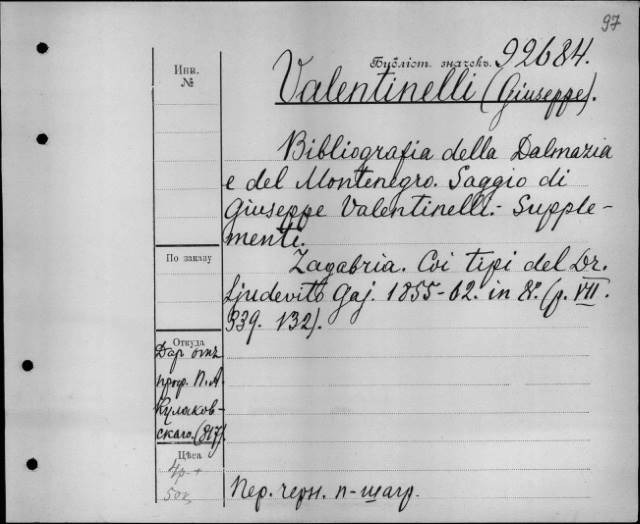 97
Инв.
№
Бубліст. значекъ. 92684.
Valentinelli (Giuseppe).
Bibliografia della Dalmazia
e del Montenegro. Saggio di
Giuseppe Valentinelli.- Supple-
menti.
Zagabria. Coi tipi del Dr.
Ljudevito Gaj. 1855-62. in 8º. (p. VII.
339. 132).
По заказу
Откуда
Даръ отъ
проф. П. А.
Кулаков-
скаго. (817).
Цѣна
4р. +
50к.
Пер. черн. п-шагр.